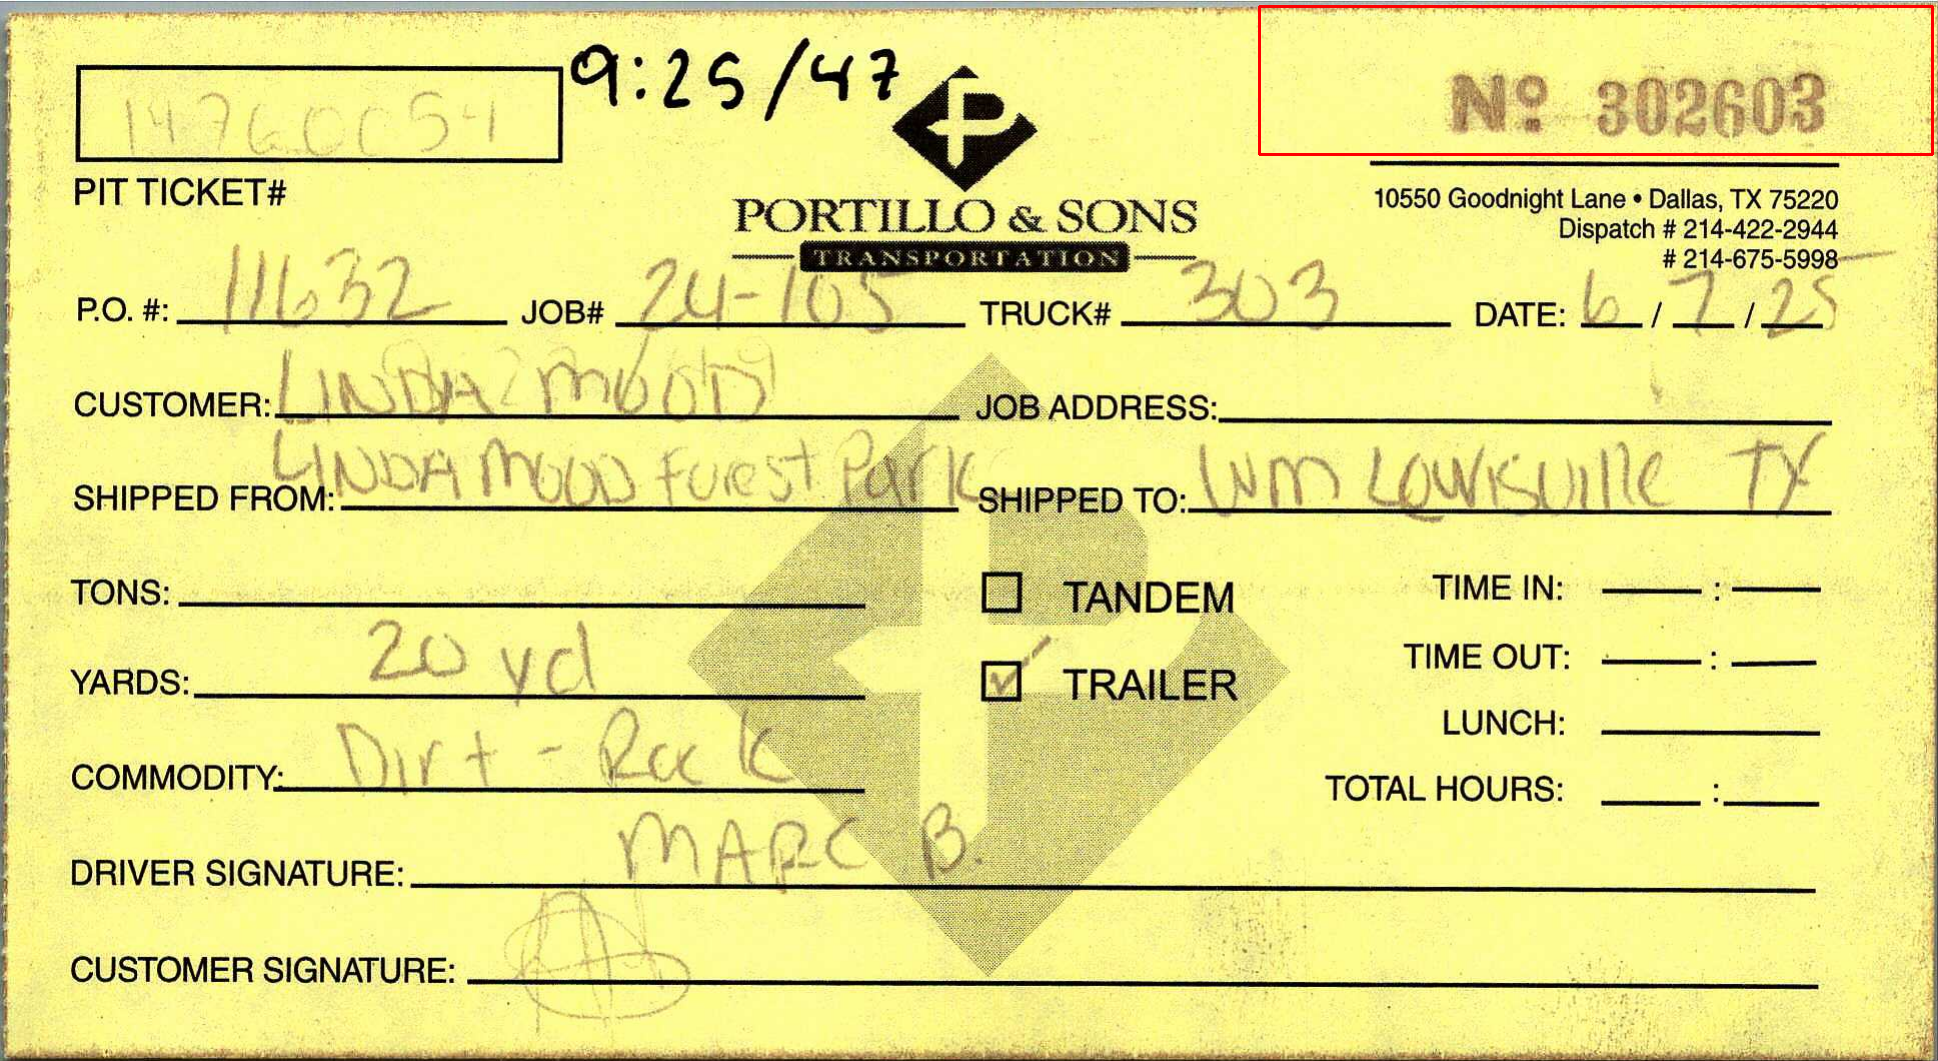 9:25/47
Nº 302603
14760054
PIT TICKET#
PORTILLO & SONS
TRANSPORTATION
10550 Goodnight Lane • Dallas, TX 75220
Dispatch # 214-422-2944
# 214-675-5998
P.O. #: 11632 JOB# 24-105 TRUCK# 303 DATE: 6/7/25
CUSTOMER: LINDA MOOD JOB ADDRESS:
SHIPPED FROM: LINDA MOOD Forest Park SHIPPED TO: WM Lewisville TX
TONS: TANDEM TIME IN: :
YARDS: 20 yd TRAILER TIME OUT: :
LUNCH:
COMMODITY: Dirt - Rock TOTAL HOURS: :
DRIVER SIGNATURE: MARC B.
CUSTOMER SIGNATURE: